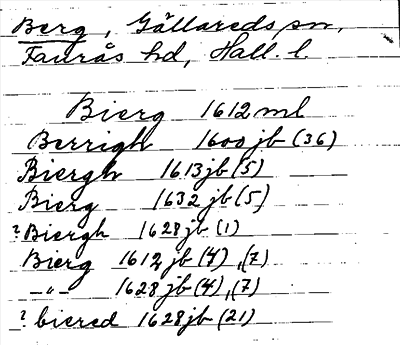 Berg, Gällareds sn,
Faurås hd, Hall. l.
Bierg 1612 ml
Berrigh 1600 jb (36)
Biergh 1613 jb (5)
Bierg 1632 jb (5)
? Biergh 1628 jb (1)
Bierg 1612 jb (4), (7)
—"— 1628 jb (4), (7)
? biered 1628 jb (21)